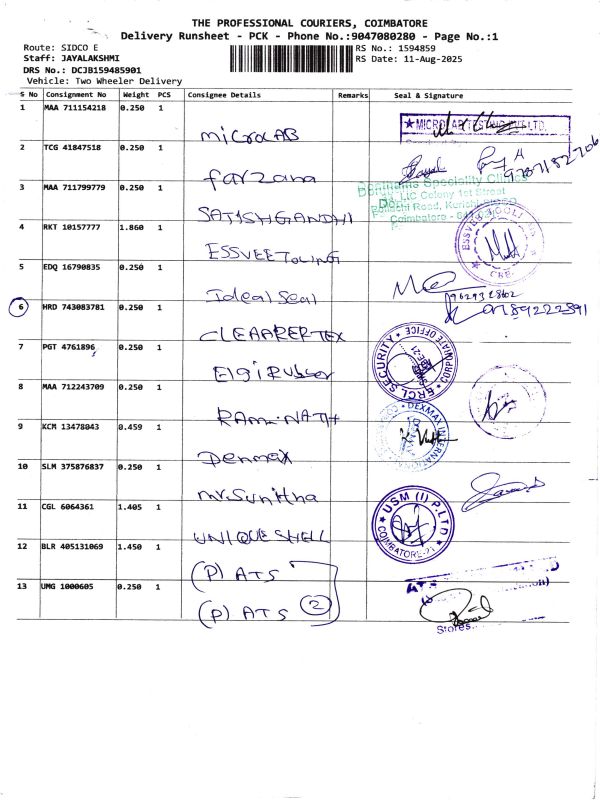 THE PROFESSIONAL COURIERS, COIMBATORE
Delivery Runsheet - PCK - Phone No.:9047080280 - Page No.:1
Route: SIDCO E
RS No.: 1594859
Staff: JAYALAKSHMI
RS Date: 11-Aug-2025
DRS No.: DCJB159485901
Vehicle: Two Wheeler Delivery
S No Consignment No Weight PCS Consignee Details Remarks Seal & Signature
1 MAA 711154218 0.250 1
micro AB
2 TCG 41847518 0.250 1
farzana
3 MAA 711799779 0.250 1
SATISH GANDHI
Speciality
LIC Colony 1st Street
Coimbatore
4 RKT 10157777 1.860 1
ESSVEE TOOLING
5 EDQ 16790835 0.250 1
Ideal Seal
6 HRD 743083781 0.250 1
CLEAARERTEX
7 PGT 4761896 0.250 1
Elgi Rubber
ERCL SECURITY * CORPORATE OFFICE
8 MAA 712243709 0.250 1
RAMINATH
9 KCM 13478043 0.459 1
Denmax
DEXMAX INTERNATIONAL
10 SLM 375876837 0.250 1
mr.Sunitha
11 CGL 6064361 1.405 1
UNIQUE SHELL
USM (I) P.LTD
COIMBATORE-21
12 BLR 405131069 1.450 1
(P) ATS
13 UMG 1000605 0.250 1
(P) ATS (2)
Stores